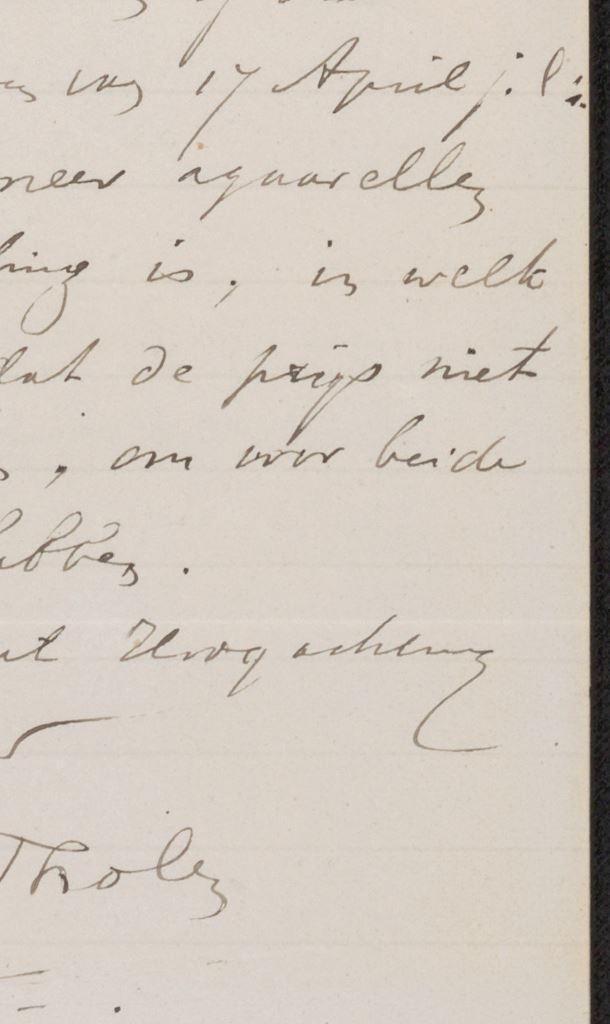 van 17 April j. l:
meer aquarellen
ling is, in welk
dat de prijs niet
, om voor beide
hebben.
Hoogachting
Tholen